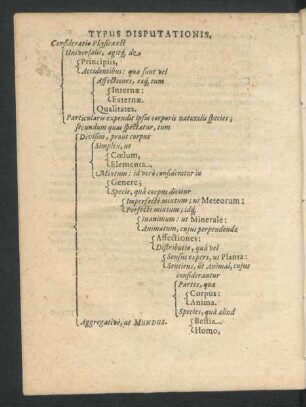 TYPUS DISPUTATIONIS,
Consideratio Physicæ est
Universalis, agitq́, de
Principiis,
Accidentibus: quæ sunt vel
Affectiones, eæq́, tum
Internæ:
Externæ.
Qualitates.
Particularis expendit ipsas corporis naturalis species;
secundum quas spectatur, tum
Divisim, prout corpus
Simplex, ut
Cœlum,
Elementa.
Mixtum: id verò consideratur in
Genere;
Specie, quâ corpus dicitur
Imperfectè mixtum; ut Meteorum;
Perfectè mixtum; idq́,
Inanimum: ut Minerale:
Animatum, cujus perpendendæ
Affectiones:
Distributio, quâ vel
Sensûs expers, ut Planta:
Sentiens, ut Animal, cujus
considerantur
Partes, quæ
Corpus:
Anima.
Species, quâ aliud
Bestia.
Homo,
Aggregativè, ut MUNDUS.